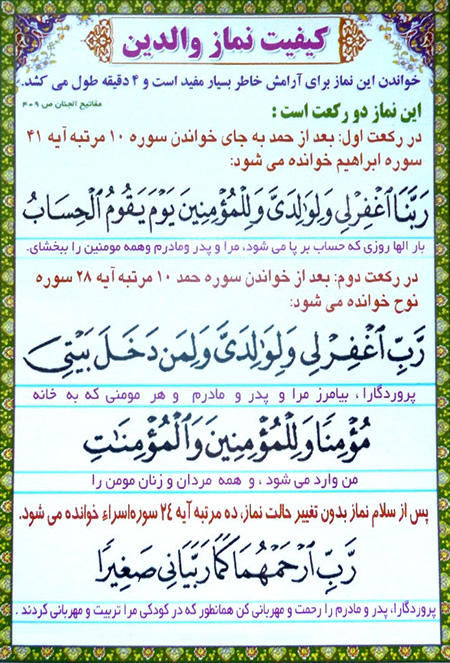 کیفیت نماز والدین
خواندن این نماز برای آرامش خاطر بسیار مفید است و ۴ دقیقه طول می کشد.
مفاتیح الجنان ص ۴۰۹
این نماز دو رکعت است :
در رکعت اول: بعد از حمد به جای خواندن سوره ۱۰ مرتبه آیه ۴۱
سوره ابراهیم خوانده می شود:
رَبَّنَا اغْفِرْلِی وَلِوَالِدَیَّ وَلِلْمُؤْمِنِینَ یَوْمَ یَقُومُ الْحِسَابُ
بار الها روزی که حساب بر پا می شود، مرا و پدر ومادرم وهمه مومنین را ببخشای.
در رکعت دوم: بعد از خواندن سوره حمد ۱۰ مرتبه آیه ۲۸ سوره
نوح خوانده می شود:
رَبِّ اغْفِرْلِی وَلِوَالِدَیَّ وَلِمَن دَخَلَ بَیْتِی
پروردگارا، بیامرز مرا و پدر و مادرم و هر مومنی که به خانه
مُؤْمِنًا وَلِلْمُؤْمِنِینَ وَالْمُؤْمِنَاتِ
من وارد می شود ، و همه مردان و زنان مومن را
پس از سلام نماز بدون تغییر حالت نماز، ده مرتبه آیه ۲۴ سوره اسراء خوانده می شود.
رَبِّ ارْحَمْهُمَا كَمَا رَبَّيَانِي صَغِيرًا
پروردگارا، پدر و مادرم را رحمت و مهربانی کن همانطور که در کودکی مرا تربیت و مهربانی کردند .